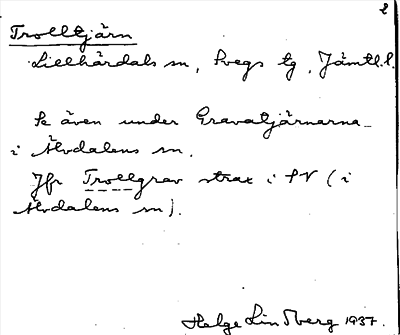 2
Trolltjärn
Lillhärdals sn, Svegs tg, Jämtl.l.
Se även under Gravatjärnarna
i Älvdalens sn.
Jfr Trollgrav strax i SV (i
Älvdalens sn).
Helge Lindberg 1937.